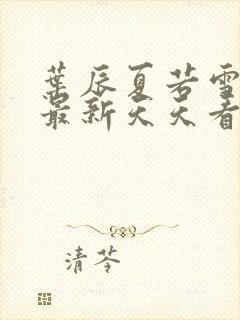 葉辰夏若雪
最新天天看
清苓